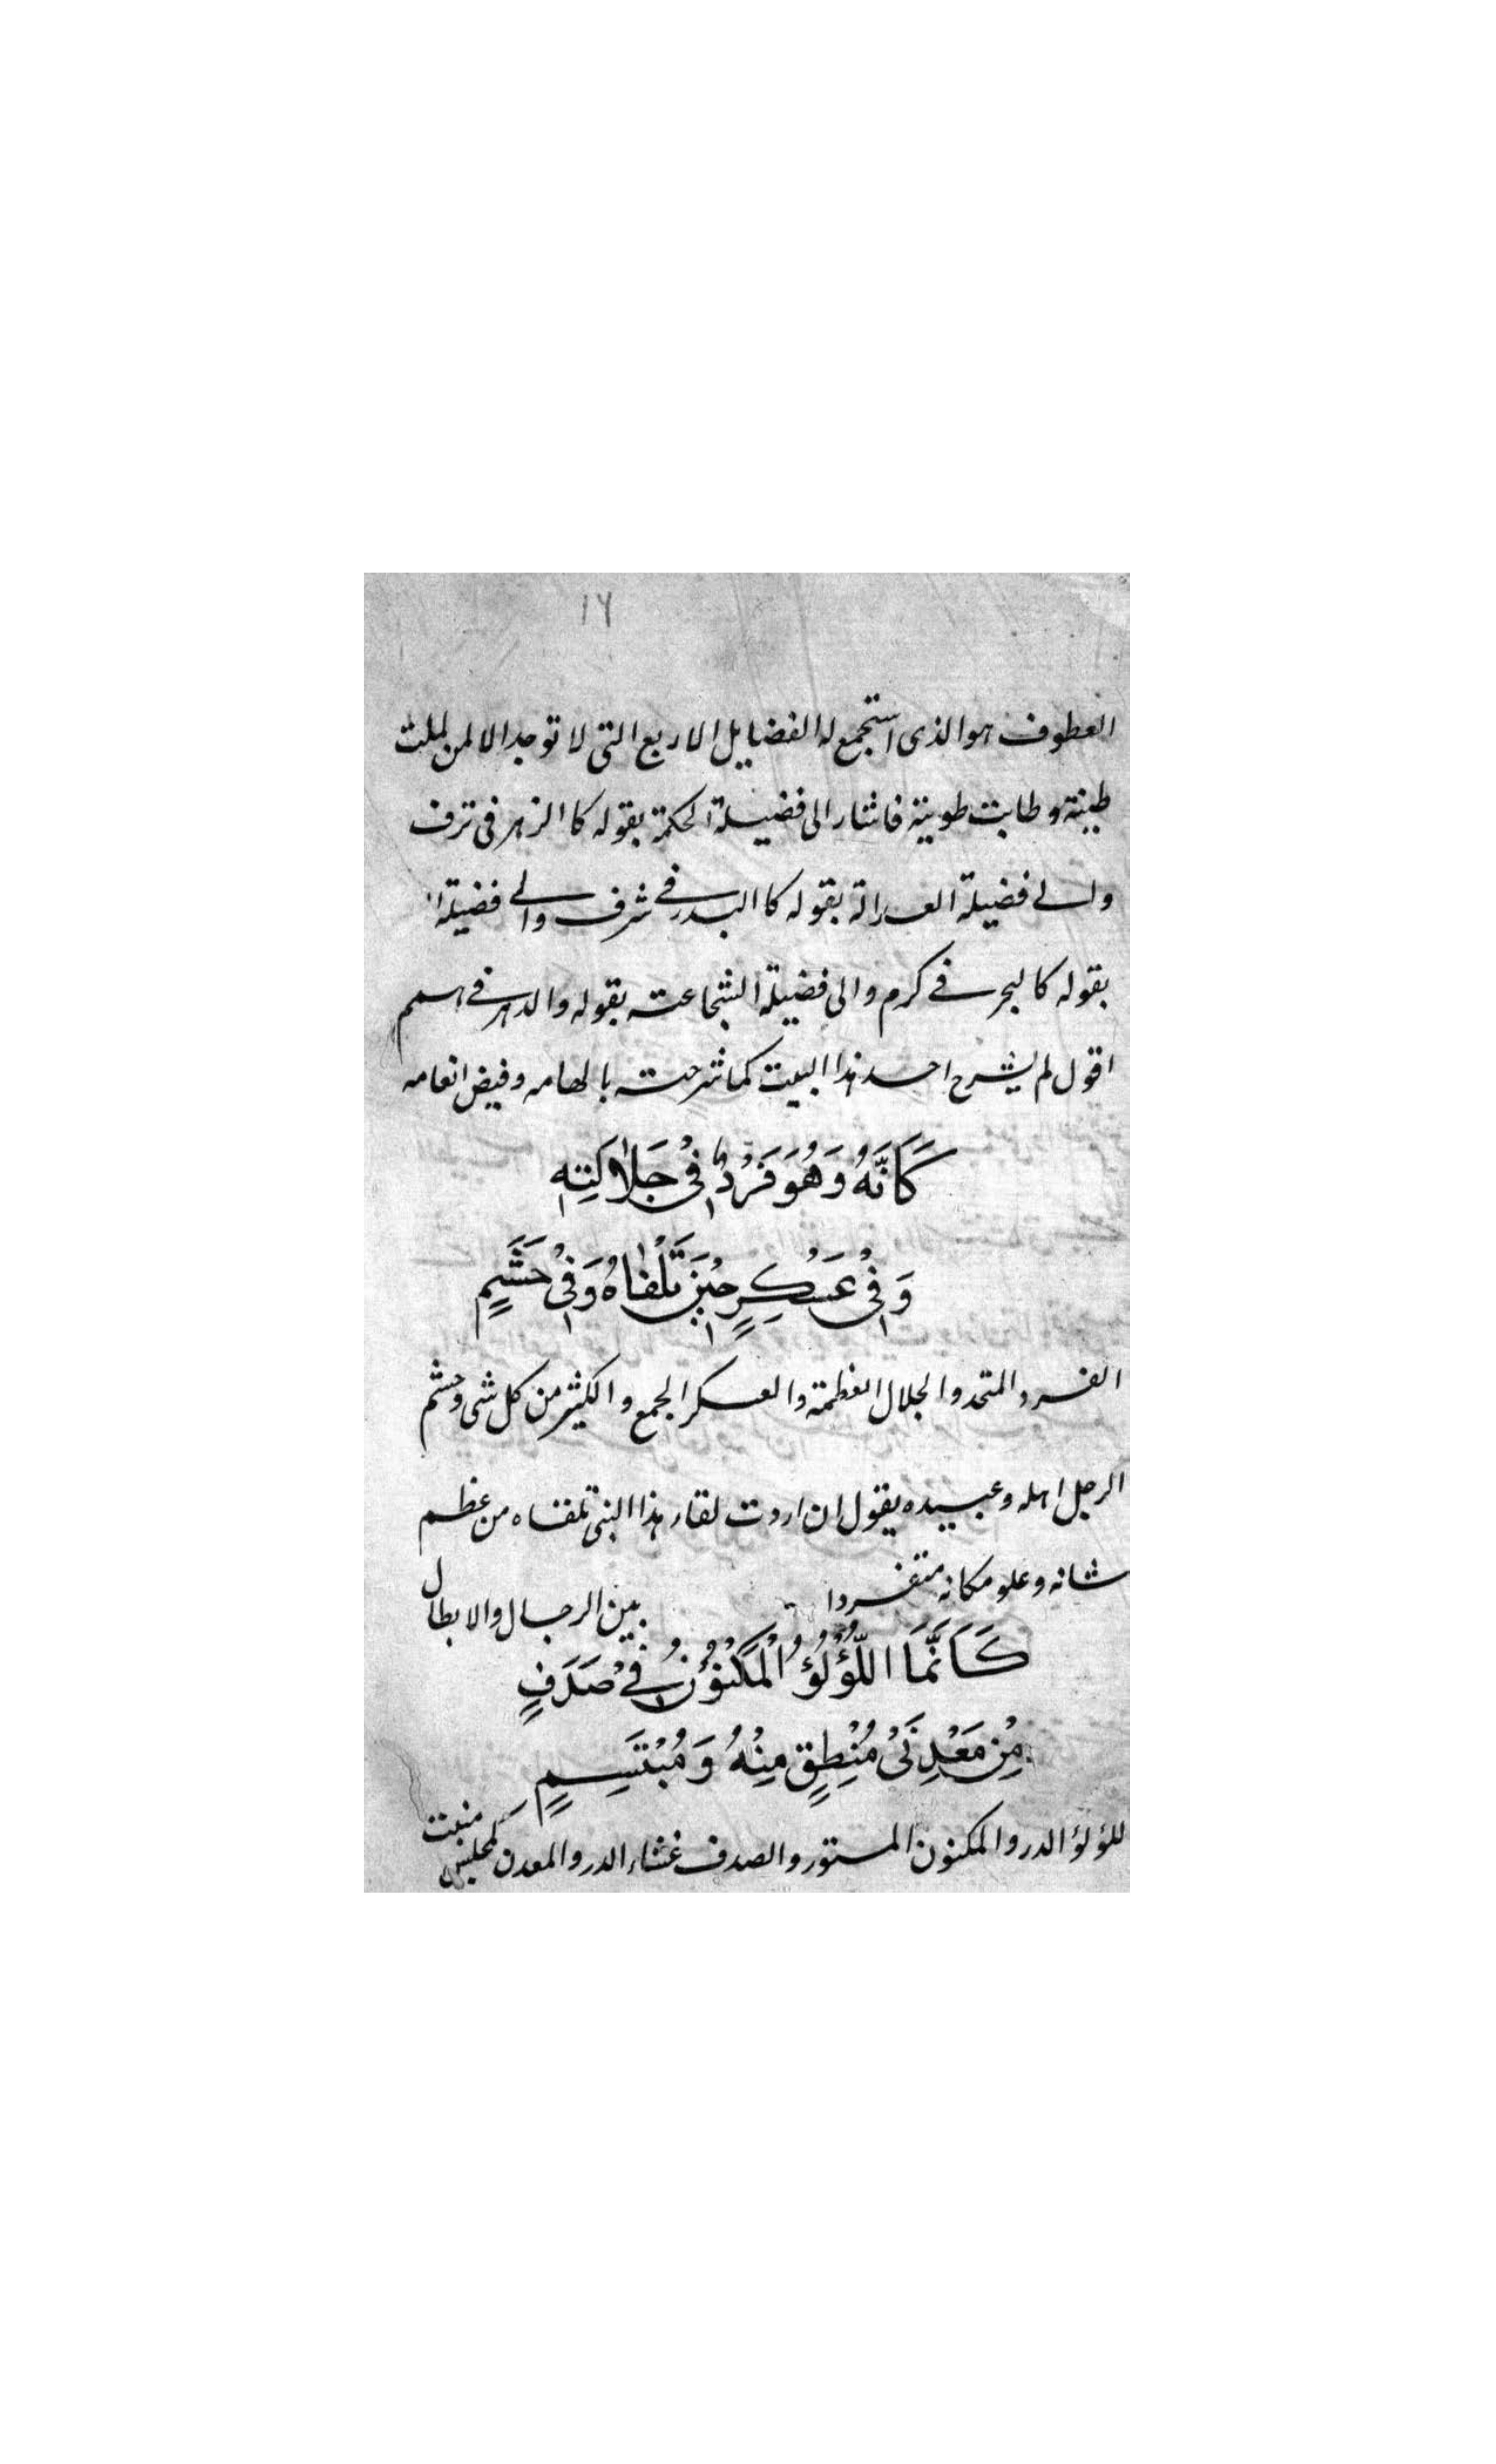 ١٦
العطوف هو الذى استجمع له الفضايل الاربع التى لا توجد الا لمن
طينة وطابت طوينة فاشار الى فضيلة الحكمة بقوله كا الزهر فى ترف
والے فضيلة العدالة بقوله كا البدر فے شرف والے فضيلة
بقوله كالبحر فے كرم والى فضيلة الشجاعته بقوله والدهر فے همم
اقول لم يشرح احد هذا البيت كما شرحته بالهامه وفيض انعامه
كَاَنَّهُ وَهُوَ فَرْدٌ فِىْ جَلَالَتِهٖ
وَفِىْ عَسْكَرٍ حِيْنَ تَلْقَاهُ وَفِىْ حَشَمٍ
الفرد المتحد والجلال العظمة والعسكر الجمع والكثير من كل شى وحشم
الرجل اهله وعبيده يقول ان اردت لقاء هذا النبى تلقاه من عظم
شانه وعلو مكانه متفردا بين الرجال والابطال
كَاَنَّمَا اللُّؤْلُؤُ الْمَكْنُوْنُ فِےْ صَدَفٍ
مِنْ مَعْدِنَىْ مُنْطِقٍ مِنْهُ وَمُبْتَسِمٍ
للؤلؤ الدر والمكنون المستور والصدف غشاء الدر والمعدن كمجلس منبت